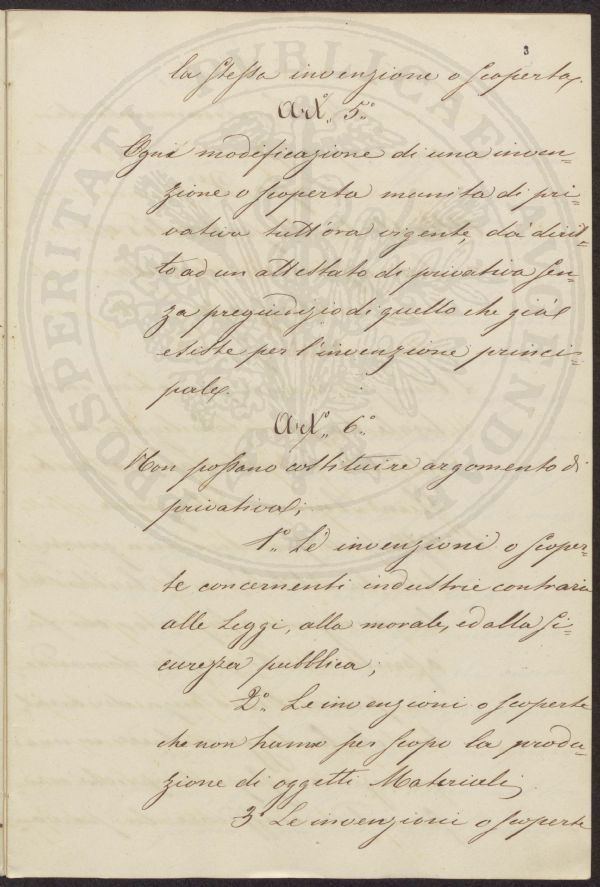 3
la stessa invenzione o scoperta.
Art.° 5.°
Ogni modificazione di una inven-
zione o scoperta munita di pri-
vativa tutt'ora vigente, dà dirit-
to ad un attestato di privativa sen-
za pregiudizio di quello che già
esiste per l'invenzione princi-
pale.
Art.° 6.°
Non possono costituire argomento di
privativa;
1.° Le invenzioni o scoper-
te concernenti industrie contrarie
alle Leggi, alla morale, ed alla si-
curezza pubblica;
2.° Le invenzioni o scoperte
che non hanno per scopo la produ-
zione di oggetti Materiali;
3° Le invenzioni o scoperte
PROSPERITATI PUBLICAE AUGENDAE